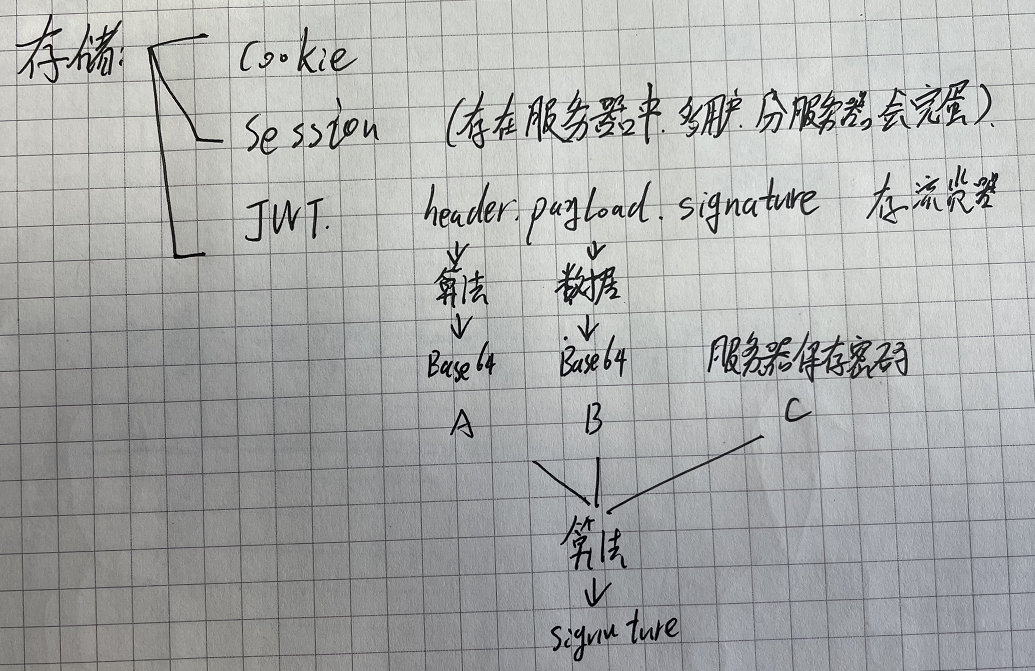 存储:
Cookie
Session (存在服务器中.多用户.分服务器,会完蛋).
JWT. header.payload.signature 存浏览器
算法 数据
Base64 Base64 服务器保存密码
A B C
算法
signature